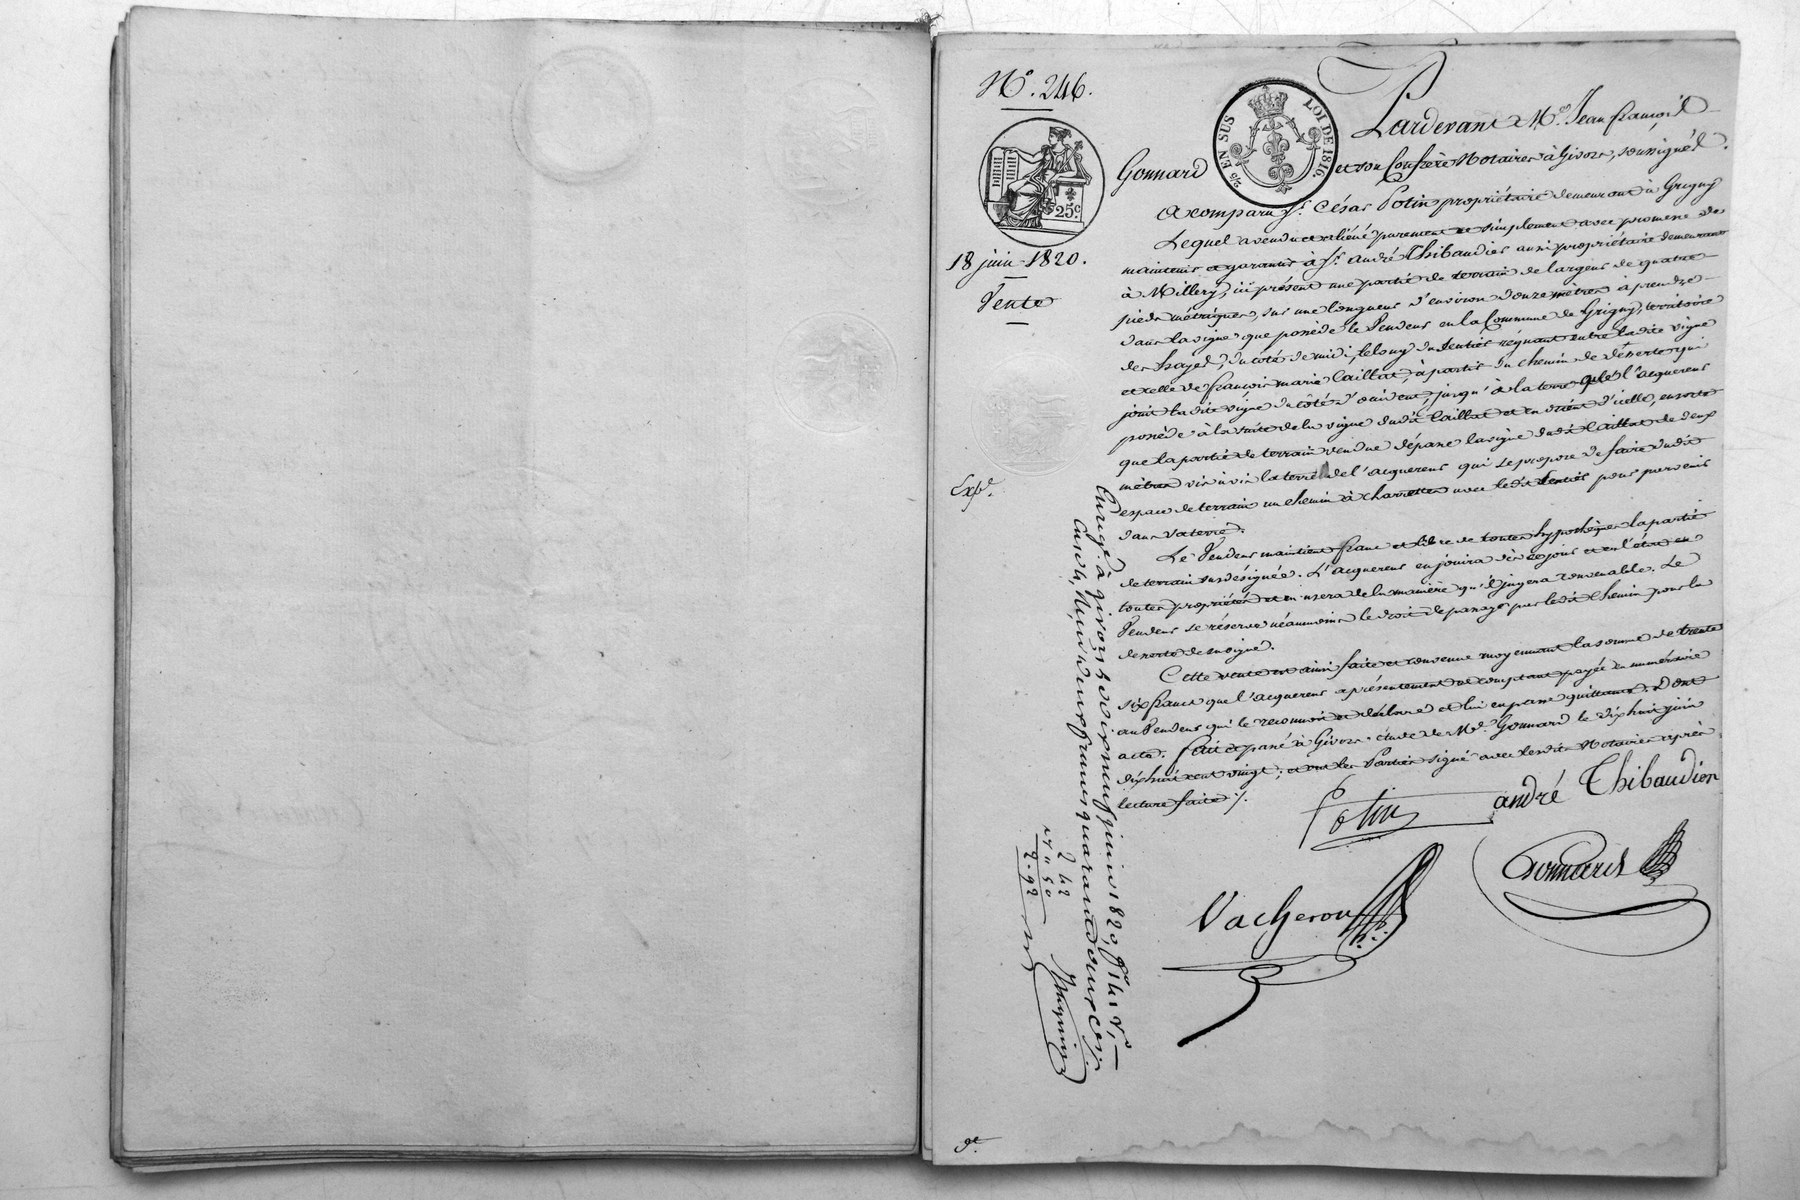 N°. 246.
25c
2/5 EN SUS LOI DE 1816.
18 juin 1820.
Vente
Expé.
Pardevant Me. Jean françois
Gonnard et son Confrère Notaires à Givors, soussignés.
A comparu sr. César Potin propriétaire demeurant à Grigny
Lequel a vendu et aliéné purement et simplement avec promesse de
maintenir et garantir à sr. André Thibaudier aussi propriétaire demeurant
à Millery, ici présent une partie de terrain de largeur de quatre
pieds métriques, sur une longueur d'environ douze mètres à prendre
dans la vigne que possède le Vendeur en la Commune de Grigny, territoire
des hayes, du coté de midi, le long du sentier régnant entre la dite vigne
et celle de françois marie Caillat, à partir du chemin de désserte qui
joint la dite vigne du côté d'occident, jusqu'à la terre que l'acquereur
possède à la suite de la vigne dudit Caillat et en orient d'icelle, en sorte
que la partie de terrain vendue dépasse la vigne dudit Caillat de deux
mètres vis à vis la terre de l'acquereur qui se propose de faire dudit
espace de terrain un chemin à charrettes avec ledit sentier pour parvenir
dans sa terre.
Le Vendeur maintient franc et libre de toutes hypothèques la partie
de terrain susdésignée. L'acquereur en jouira dès ce jour et en l'état en
toutes propriétés et en usera de la manière qu'il jugera convenable. Le
Vendeur se réserve néanmoins le droit de passage par ledit chemin pour la
desserte de sa vigne.
Cette vente est ainsi faite et convenue moyennant la somme de trente
six francs que l'acquereur a présentement et comptant payée en numéraire
au Vendeur qui le reconnoit et déclare et lui en passe quittance. Dont
acte. fait et passé à Givors étude de Me. Gonnard le dix huit juin
dix huit cent vingt; et ont les Parties signé avec lesdits Notaires après
lecture faite ./.
Potin
andré Thibaudier
Vacheron
Gonnard
Enregé. à givors le dix neuf juin 1820, fo. 141 Vo,
deux francs quarante deux ces.
2 42
50
2.92